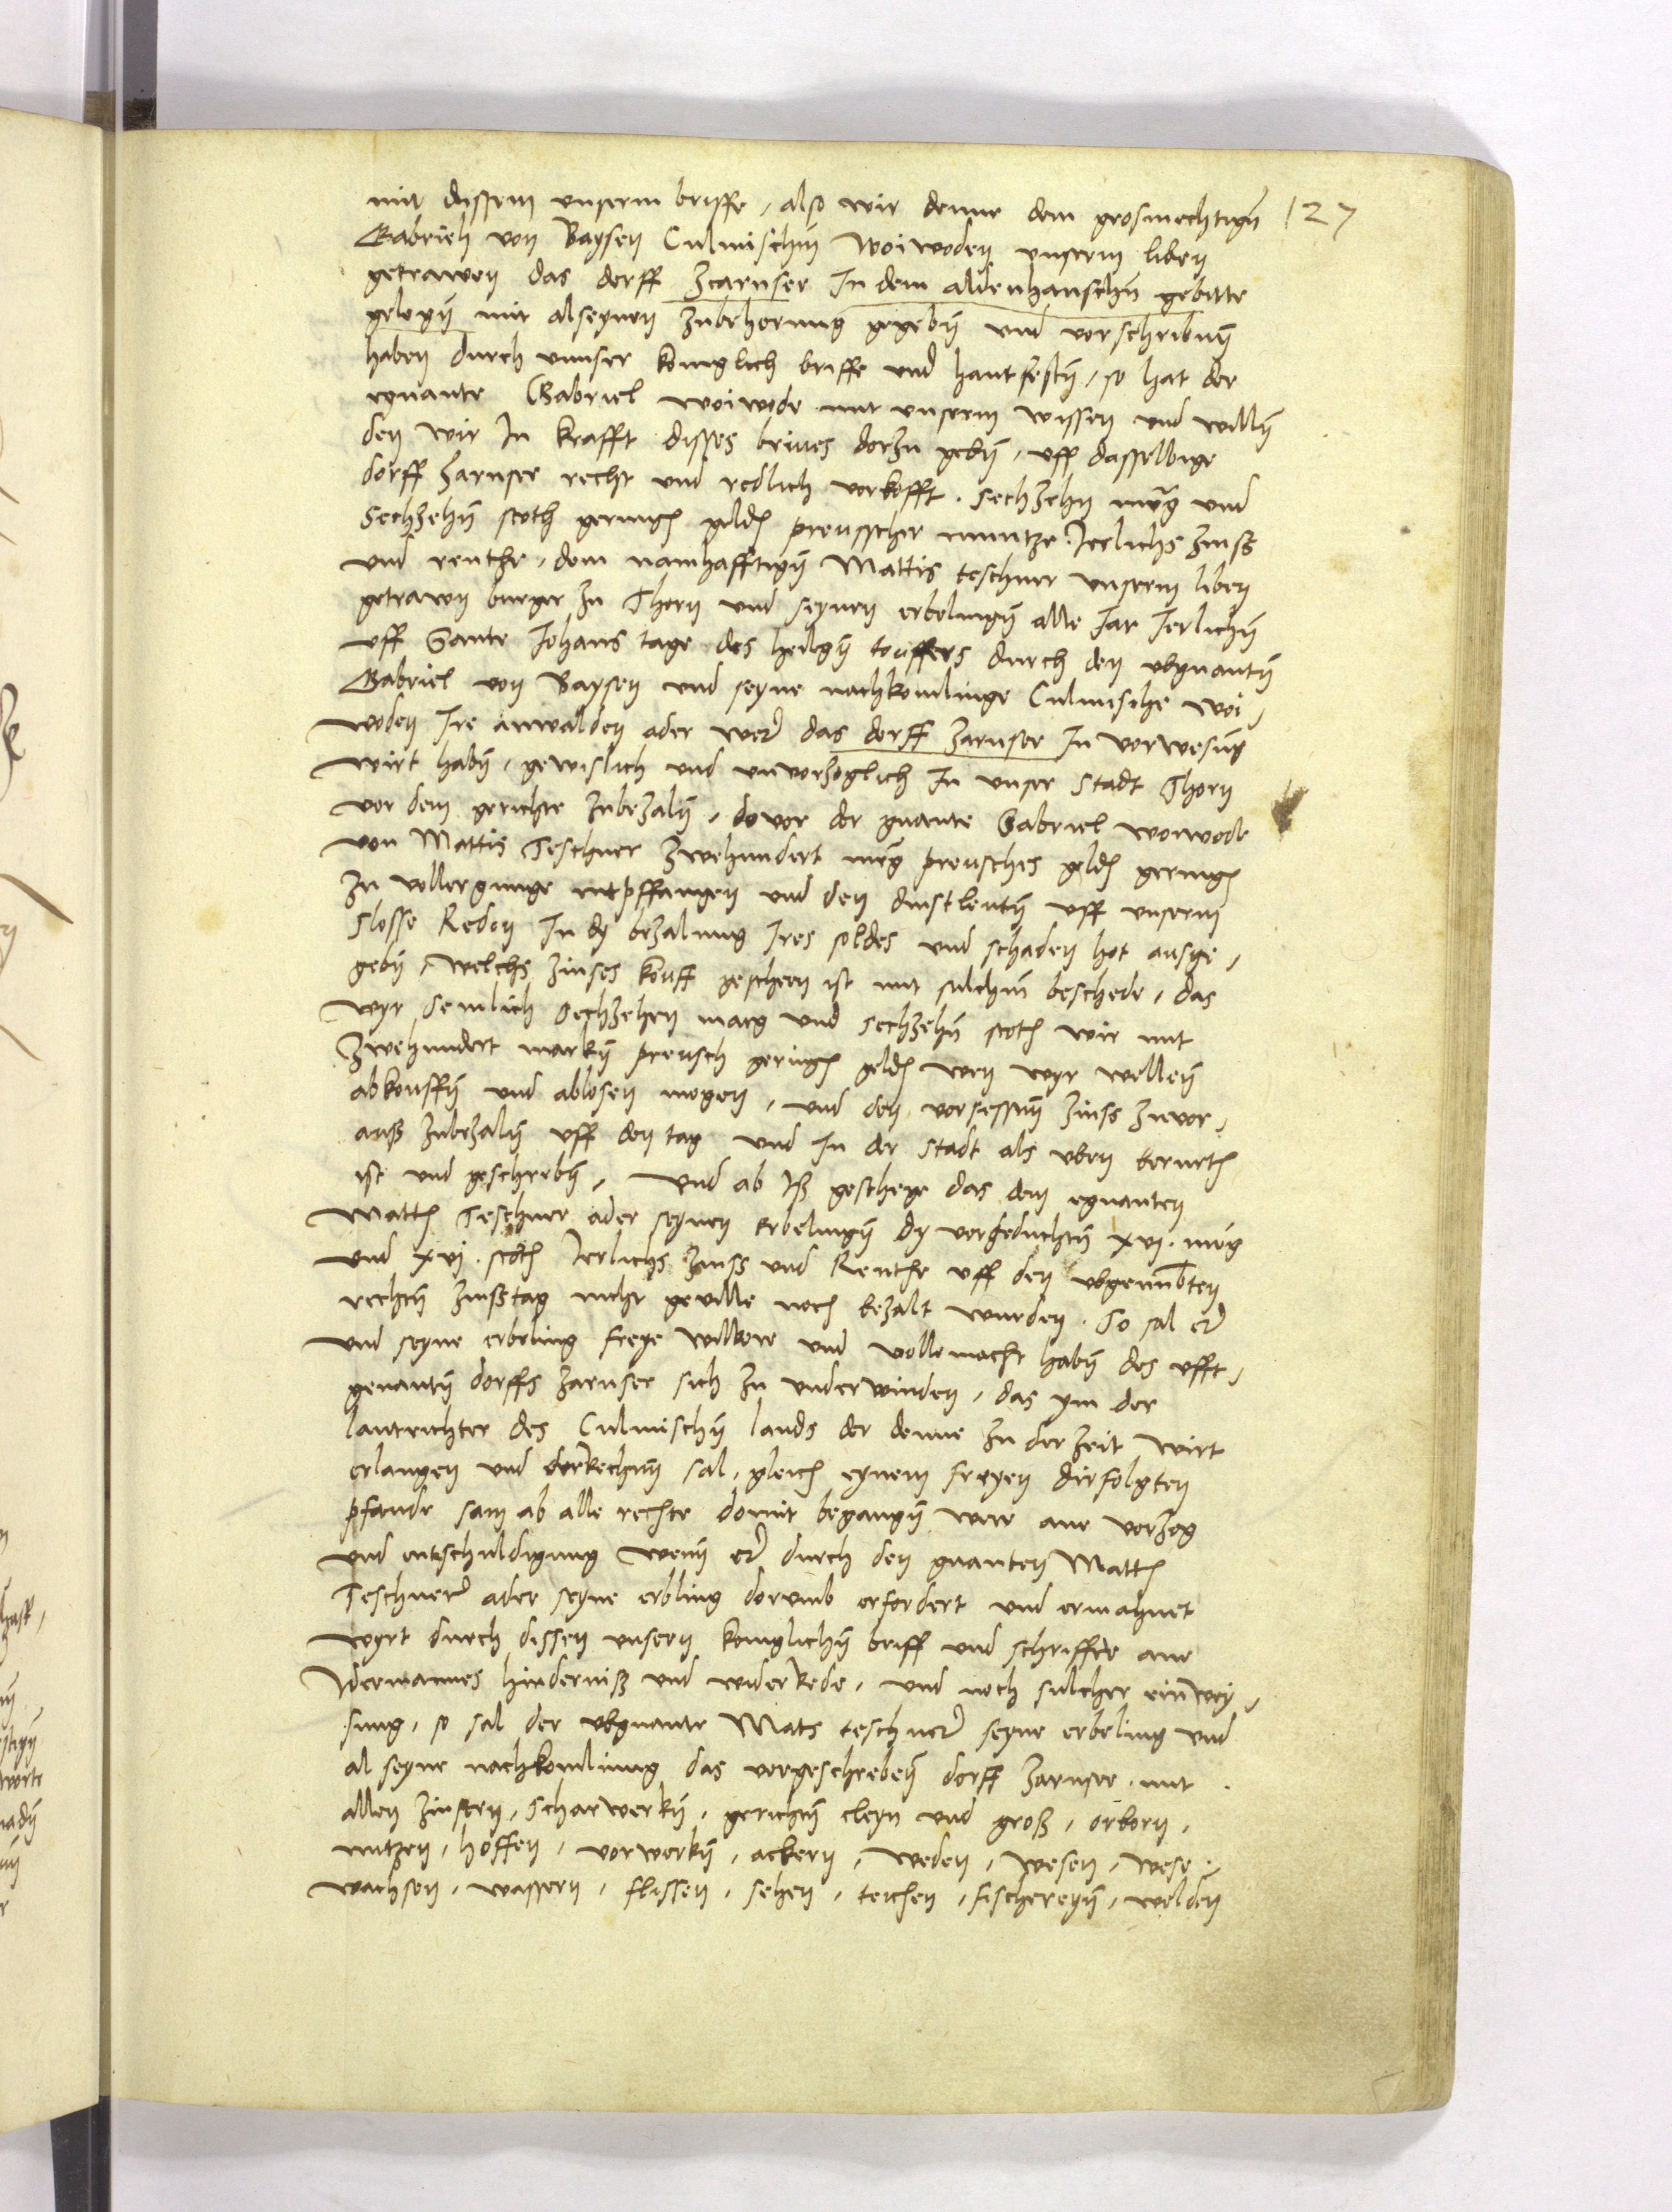 127
mit dissem unserm briffe, also wir denne dem grosmechtigen
Gabrieln von Baysen Culmischem Woiwoden unserm liben
getrawen das dorff Zcarnsee In dem aldenhauschen gebitte
gelegen mit alseynen zubehorung gegeben und vorschribenn
haben durch unnser koniglich briffe und hantfesten, so hat der
egnante Gabriel woiwode mit unserm wissen und willen
den wir In krafft disses brives dorzu geben, uff dasselbige
dorff Zarnsee recht und redlich verkofft. Sechzehn mrg und
Sechzehen scoth gering geld preusscher muntze Jerlichs Zinss
und renthe, dem namhafftigen Mattis teschner unserm liben
getrawen burger zu Thorn und seynen erbelingen alle Jar Jerlichen
uff Sante Johans tage des heilgen touffers durch den obgnanten
Gabriel von Baysen und seyne nachkomlinge Culmische woi,
woden Ire anwalden ader wer das dorff Zarnsee In vorwesung
wirt haben, gewislich und unvorzoglich In unser Stadt Thorn
vor dem gerichte zubezalen, dovor der gnante Gabriel woiwode
von Mattis Teschner Zwehundert mrg preusches geld gering
zu vollergunge entpffangen und den dinstleuten uff unserm
Slosse Reden In dy bezalung Ires soldes und schaden hot ausge,
geben, Welchs Zinses kouff gescheen ist mit sulchem beschede, das
wyr Semlich Sechzehen marg und sechzehen scoth wir mit
Zwehundert marken preusch gering geld wen wyr wellen
abkouffen und ablosen mogen, und den vorsessen Zinss zuvor,
auß zubezalen uff den tag und In der Stadt als oben berurth
ist und geschreben, Und ab Iß geschege das dem egnanten
Matth Teschner ader seynen erbelingen dy vorgeduchten xvi. mrg
und xvi. scoth Jerlichs Zinss und Renthe uff den obgenmbten
rechten Zinsstag nicht geville noch bezalt wurden. So sal er
und seyne erbeling freye willkore und volle macht haben des offt,
genanten dorffs Zarnsee sich zu underwinden, das ym der
lantrichter des Culmischen lands der denne zu der Zeit wirt
erlangen und dorkechnen sal, gleich eynem freyen dirfolgten
pfande sam ab alle rechte domit begangen were ane vorzog
und entschuldigung wenn er durch den gnanten Matth
Teschner ader seyne erbling dorumb erfordert und ermahnet
wyrt durch dissen unsern koniglichen briff und schriffte ane
Idermannes hinderniß und widerkede, und noch sulcher einwey,
sung, so sal der obgnante Mats teschner seyne erbeling und
al seyne nachkomlinng das vorgeschreben dorff Zarnsee mit
allen Zinsern, Scharwerken, gerichten cleyn und groß, orborn,
nutzen, hoffen, vorwerken, ackern, weden, wesen, wese,
wachsen, wassern, flissen, sehen, teichen, fischereyen, welden